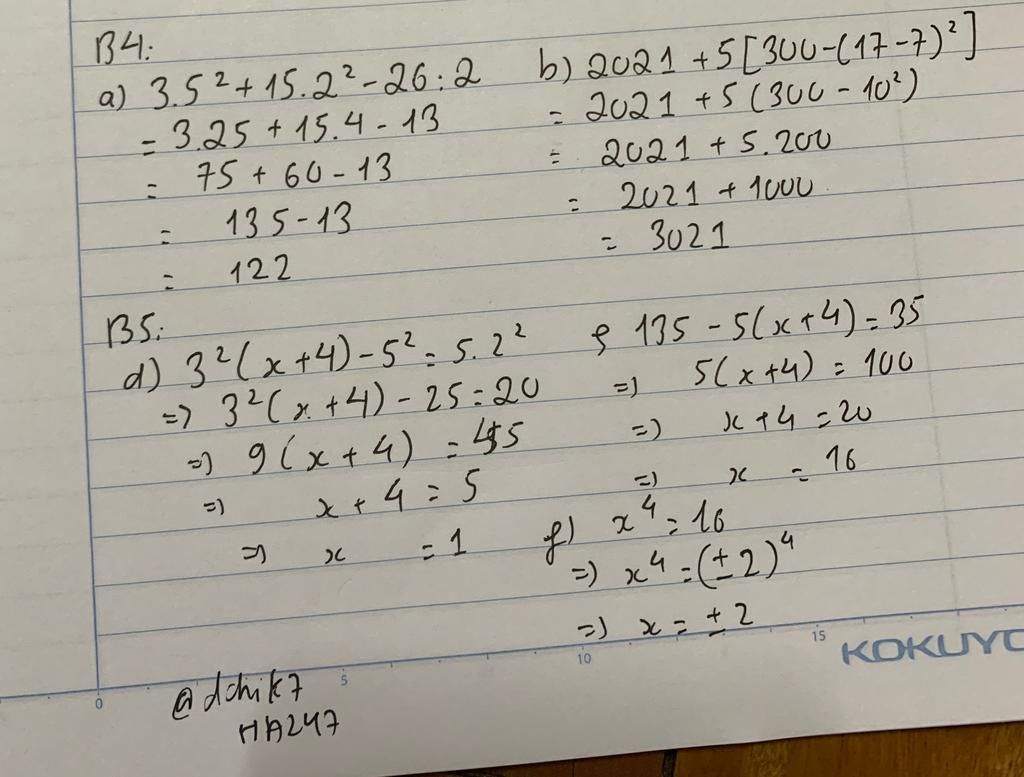 B4:
a) 3.5² + 15.2² - 26:2
= 3.25 + 15.4 - 13
= 75 + 60 - 13
= 135 - 13
= 122
b) 2021 + 5[300 - (17 - 7)²]
= 2021 + 5(300 - 10²)
= 2021 + 5.200
= 2021 + 1000
= 3021
B5:
d) 3²(x + 4) - 5² = 5.2²
=> 3²(x + 4) - 25 = 20
=> 9(x + 4) = 45
=> x + 4 = 5
=> x = 1
135 - 5(x + 4) = 35
=> 5(x + 4) = 100
=> x + 4 = 20
=> x = 16
f) x⁴ = 16
=> x⁴ = (±2)⁴
=> x = ±2
0 5 10 15
KOKUYO
@dchik7
HA247